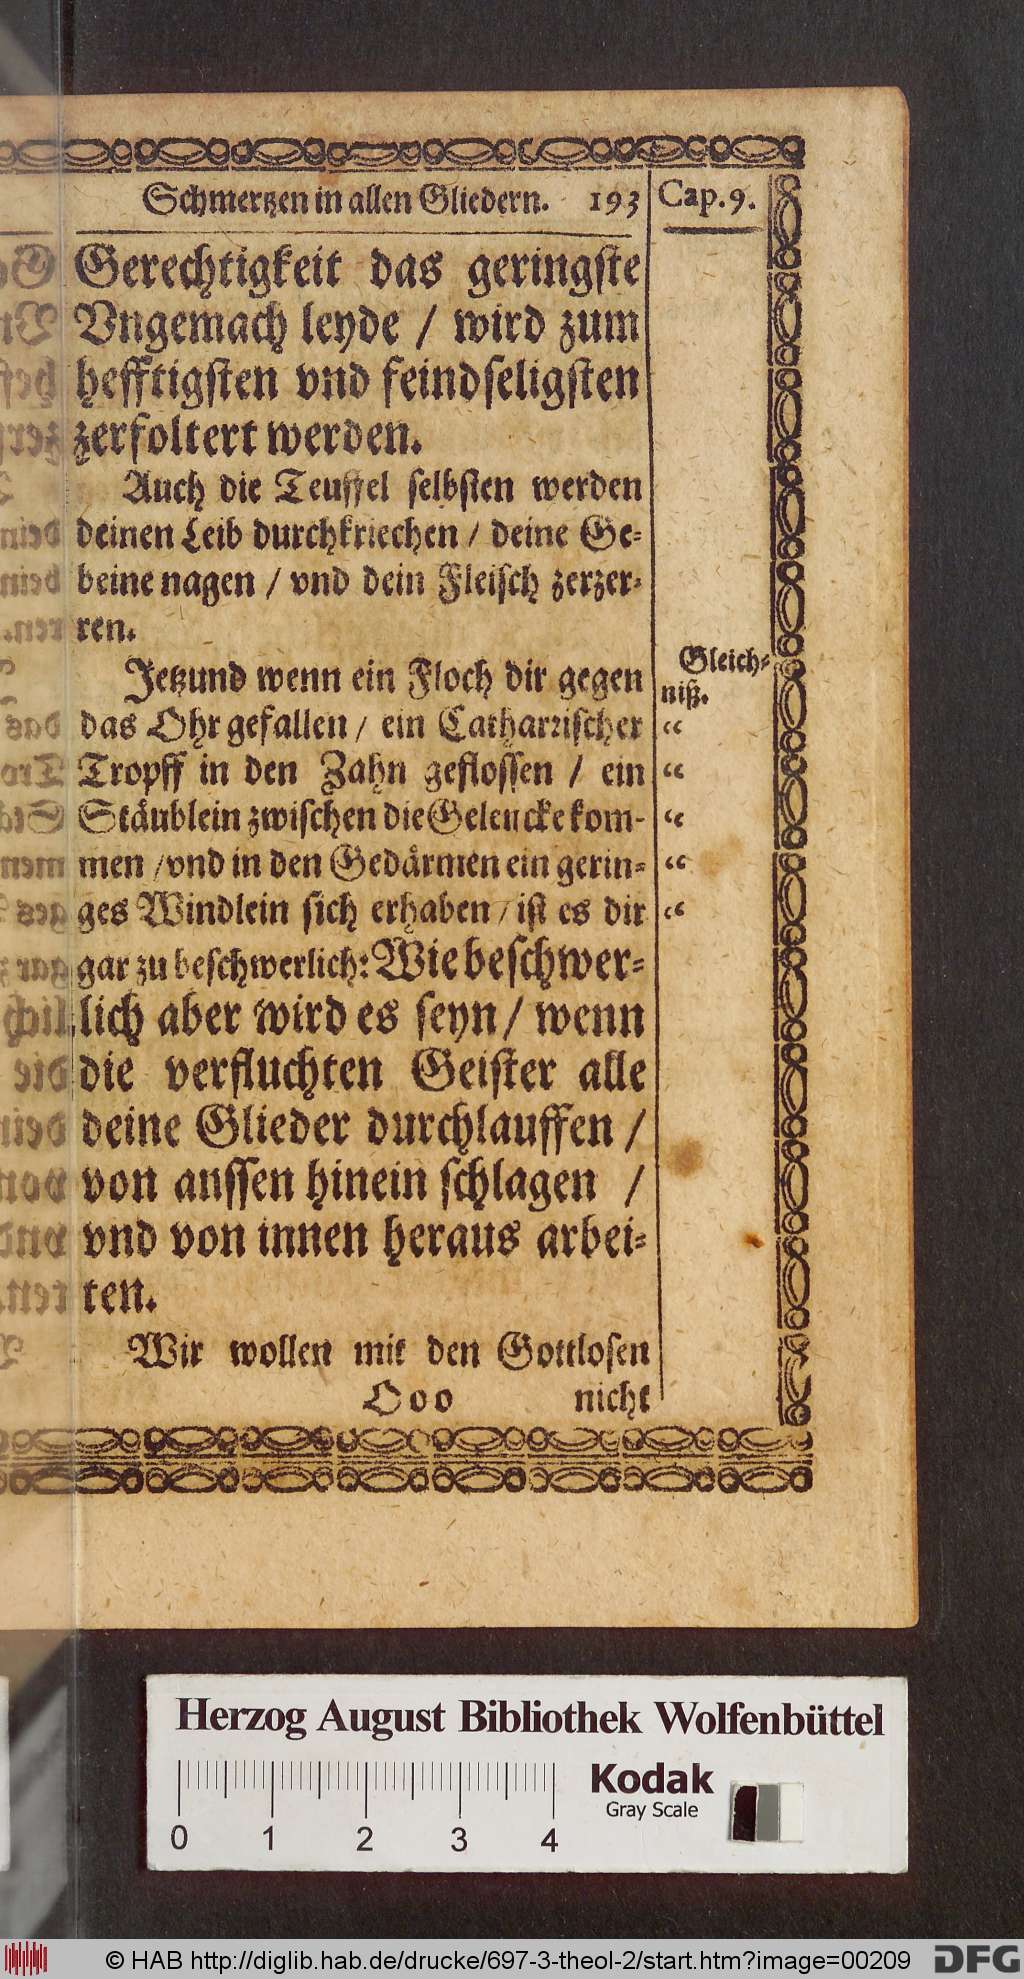 Schmertzen in allen Gliedern. 193
Cap. 9.
Gerechtigkeit das geringste
Vngemach leyde / wird zum
hefftigsten vnd feindseligsten
zerfoltert werden.
Auch die Teuffel selbsten werden
deinen Leib durchkriechen / deine Ge=
beine nagen / vnd dein Fleisch zerzer=
ren.
Jetzund wenn ein Floch dir gegen
das Ohr gefallen / ein Catharrischer
Tropff in den Zahn geflossen / ein
Stäublein zwischen die Geleucke kom-
men / vnd in den Gedärmen ein gerin=
ges Windlein sich erhaben / ist es dir
gar zu beschwerlich: Wie beschwer=
lich aber wird es seyn / wenn
die verfluchten Geister alle
deine Glieder durchlauffen /
von aussen hinein schlagen /
vnd von innen heraus arbei=
ten.
Wir wollen mit den Gottlosen
Ooo nicht
Gleich=
niß.
“
“
“
“
“
Herzog August Bibliothek Wolfenbüttel
Kodak
Gray Scale
0 1 2 3 4
© HAB http://diglib.hab.de/drucke/697-3-theol-2/start.htm?image=00209
DFG